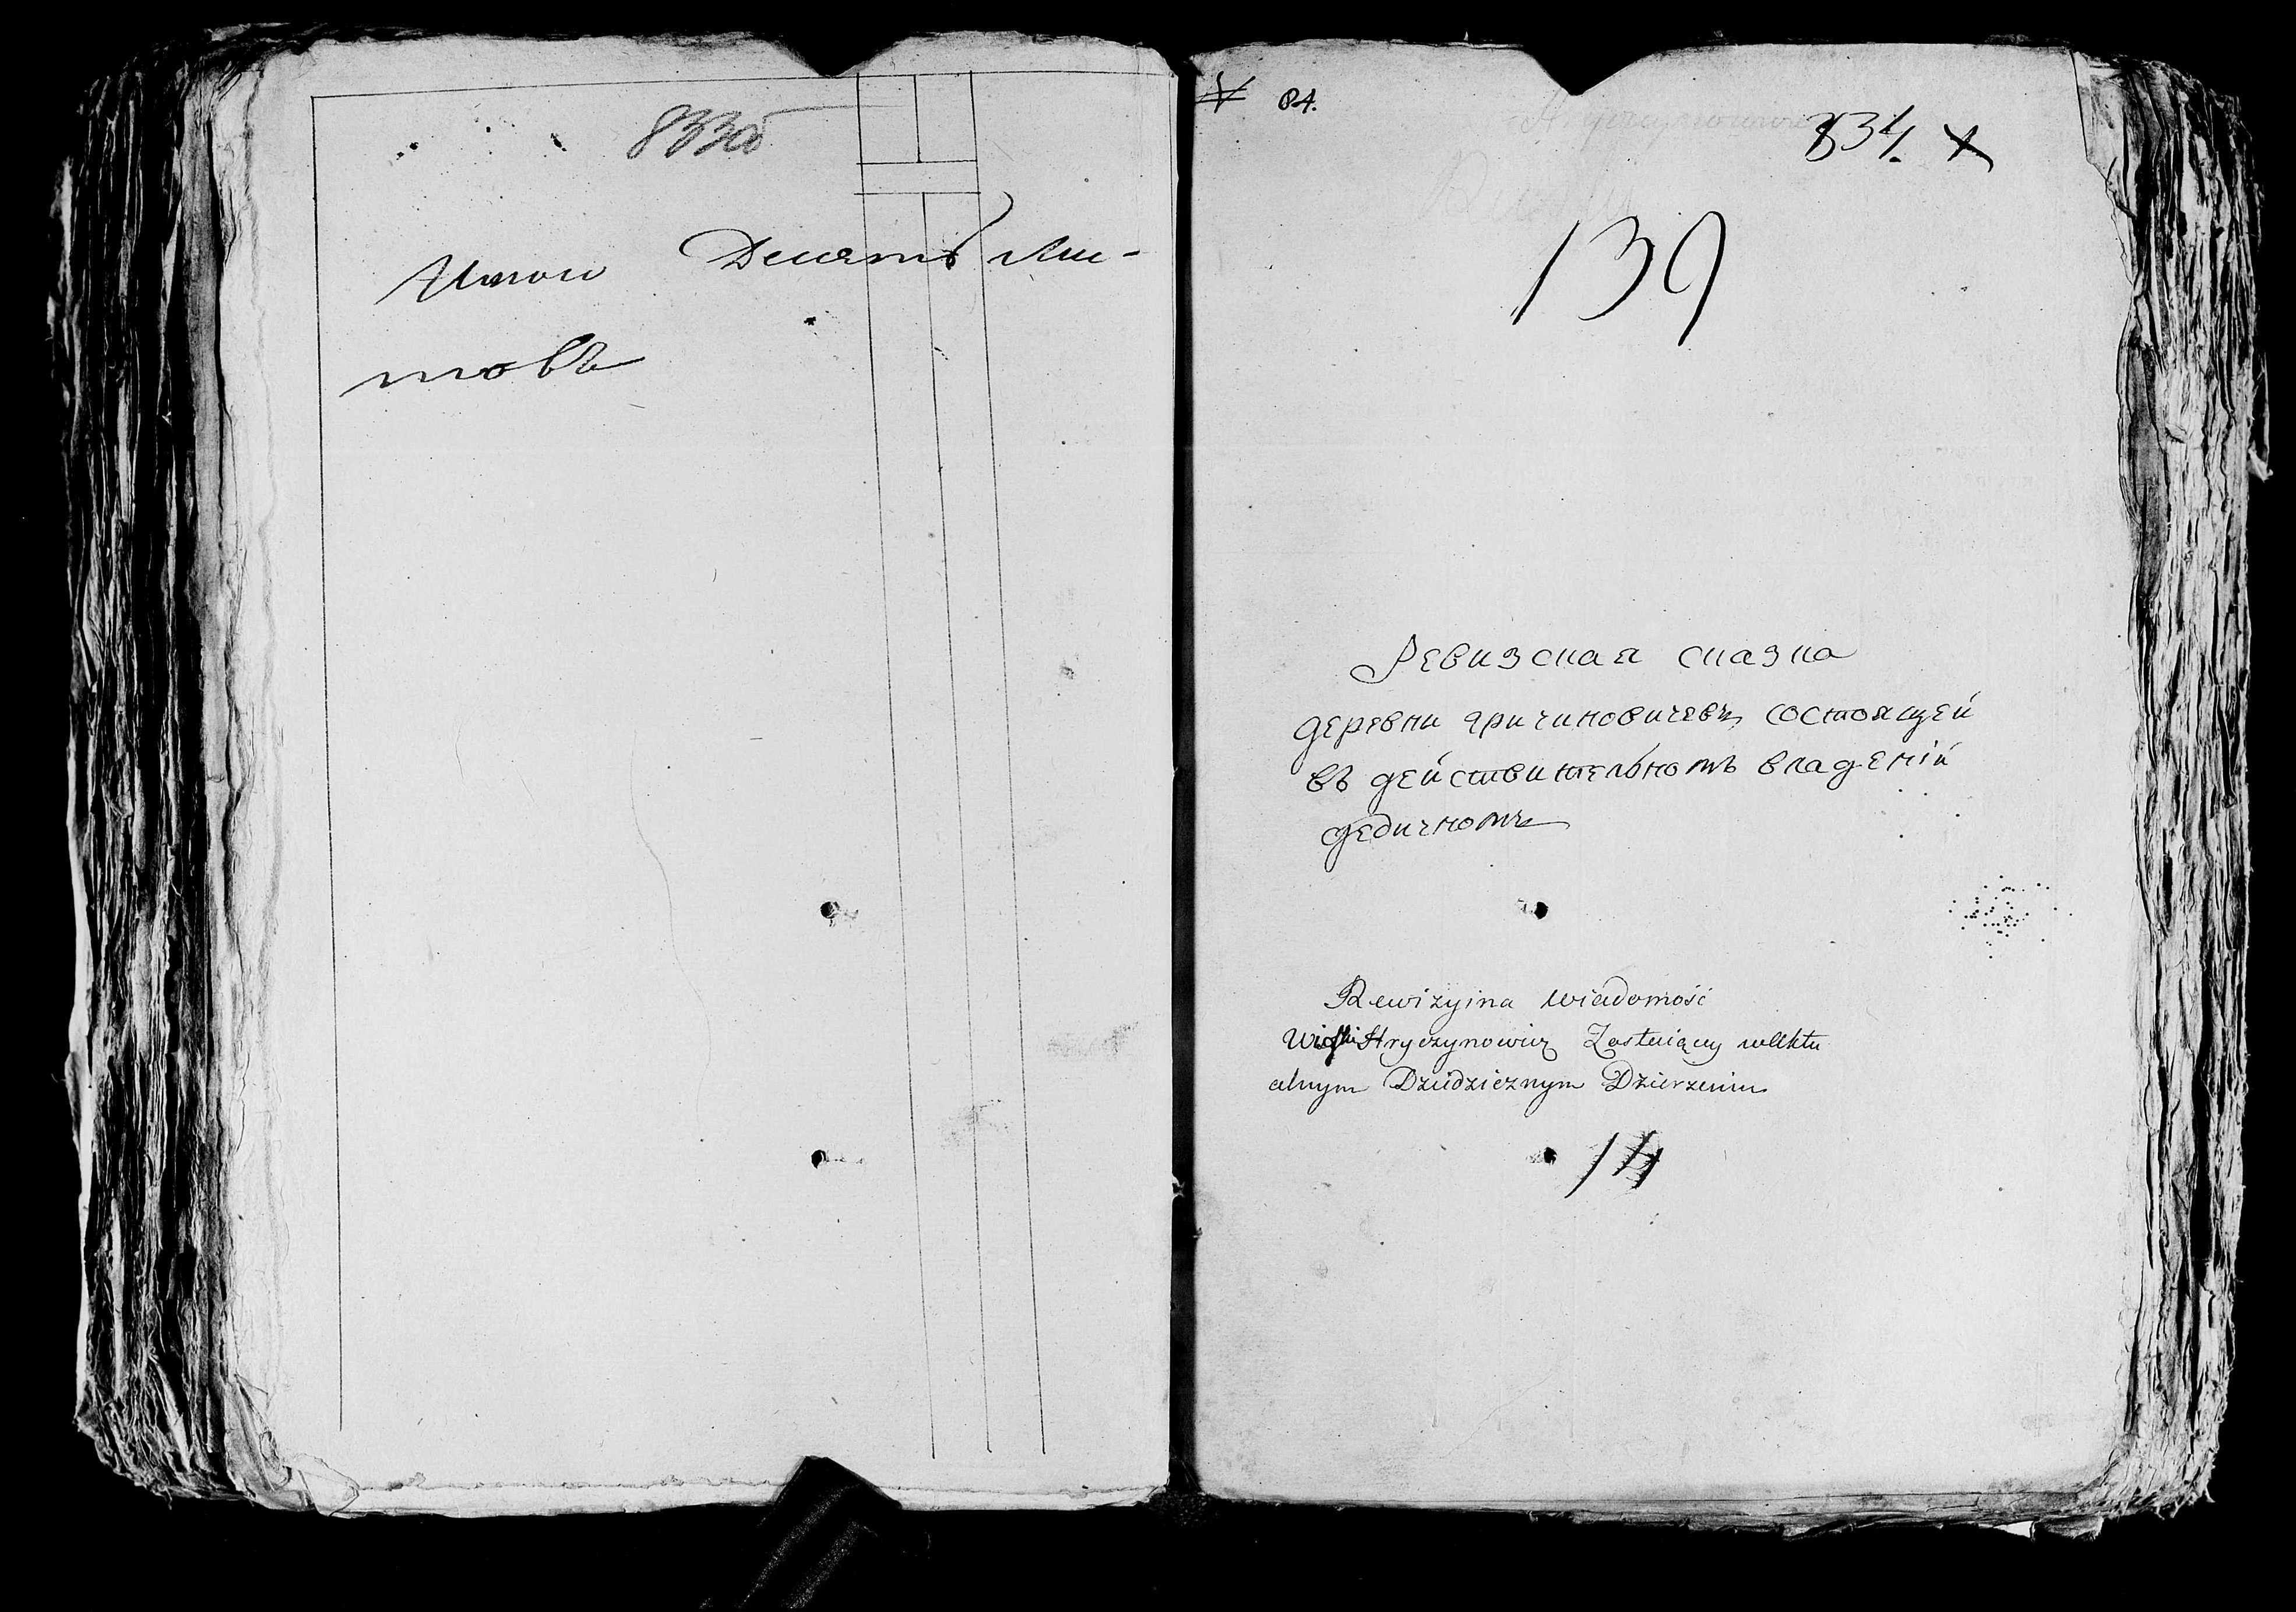 833об
Итого Десять лис-
товъ
84.
834.
139
Ревизская сказка
деревни гричиновичевъ состоящей
въ действительномъ владении
дедичномъ
Rewizyina Wiadomość
Wioski Hryczynowicz Zostaiący w Aktu
alnym Dziedzicznym Dzierzeniu
14